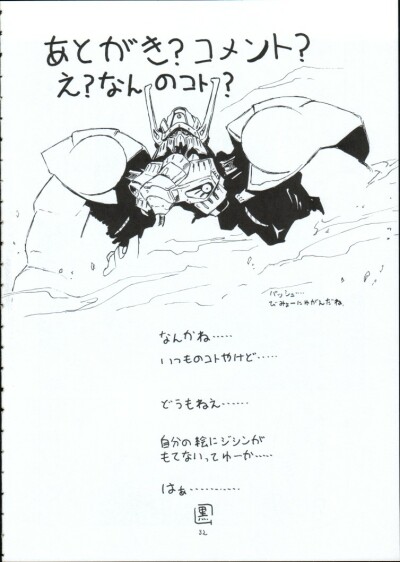 あとがき？コメント？
え？なんのコト？
バッシュ…
びみょーにゃがんだね
なんかね‥‥‥
いつものコトやけど‥‥‥
どうもねえ‥‥‥
自分の絵にジシンが
もてないってゆーか‥‥‥
はぁ‥‥‥‥‥
黒
32